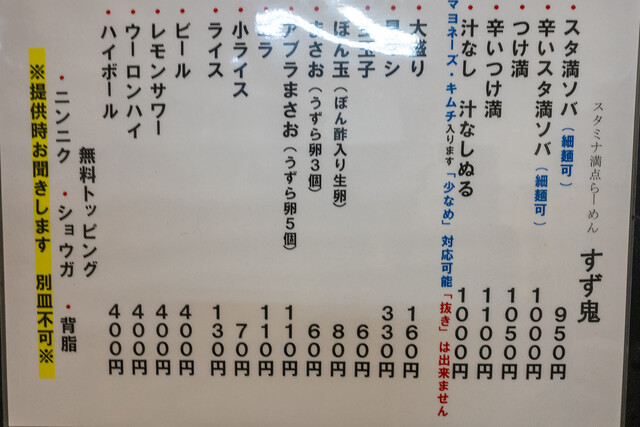 スタミナ満点らーめん すず鬼
・スタ満ソバ（細麺可） 950円
・辛いスタ満ソバ（細麺可） 1000円
・つけ満 1050円
・辛いつけ満 1100円
・汁なし 汁なしぬる 1000円
マヨネーズ・キムチ入ります「少なめ」対応可能「抜き」は出来ません
・大盛り 160円
330円
60円
・ぽん玉（ぽん酢入り生卵） 80円
・まさお（うずら卵3個） 60円
・アブラまさお（うずら卵5個） 110円
110円
・小ライス 70円
・ライス 130円
・ビール 400円
・レモンサワー 400円
・ウーロンハイ 400円
・ハイボール 400円
無料トッピング
・ニンニク ・ショウガ ・背脂
※提供時お聞きします 別皿不可※